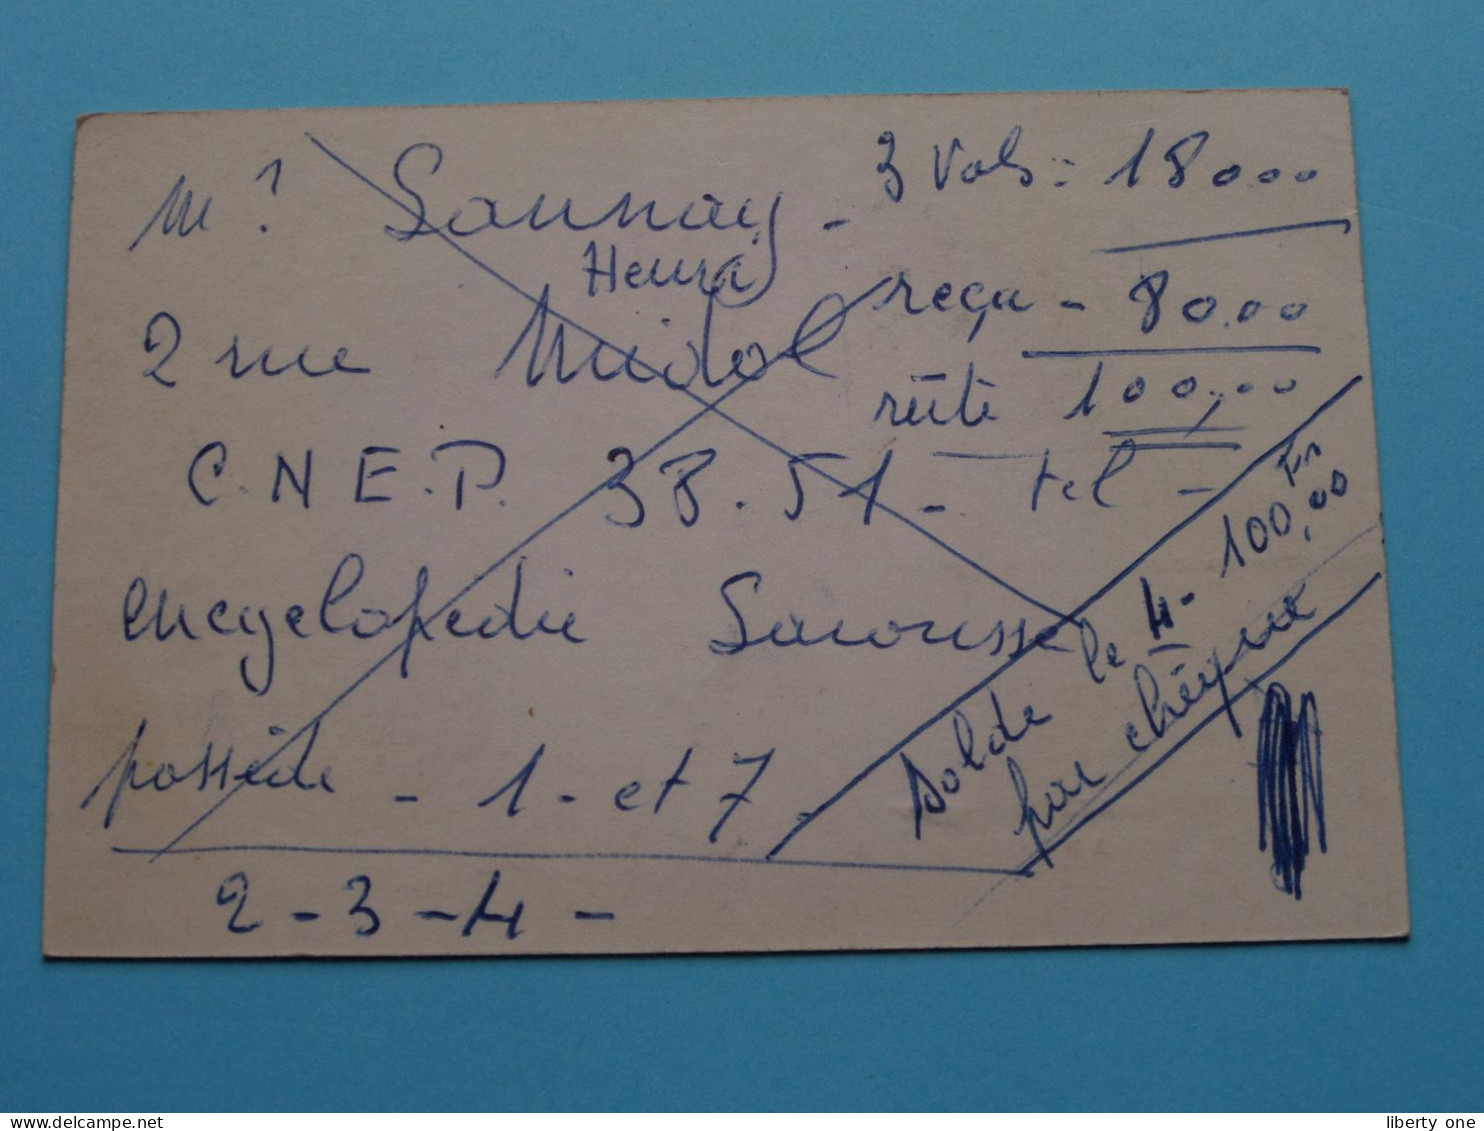 Mr Saunay - 3 Vols: 180.00
Henri
reçu - 80.00
2 rue Midol
reste 100,00
C.N.E.P. 38.51 - tel -
encyclopédie Larousse
possède - 1 - et 7.
solde le 4 - 100,00 Fr
par chèque
2 - 3 - 4 -
liberty one